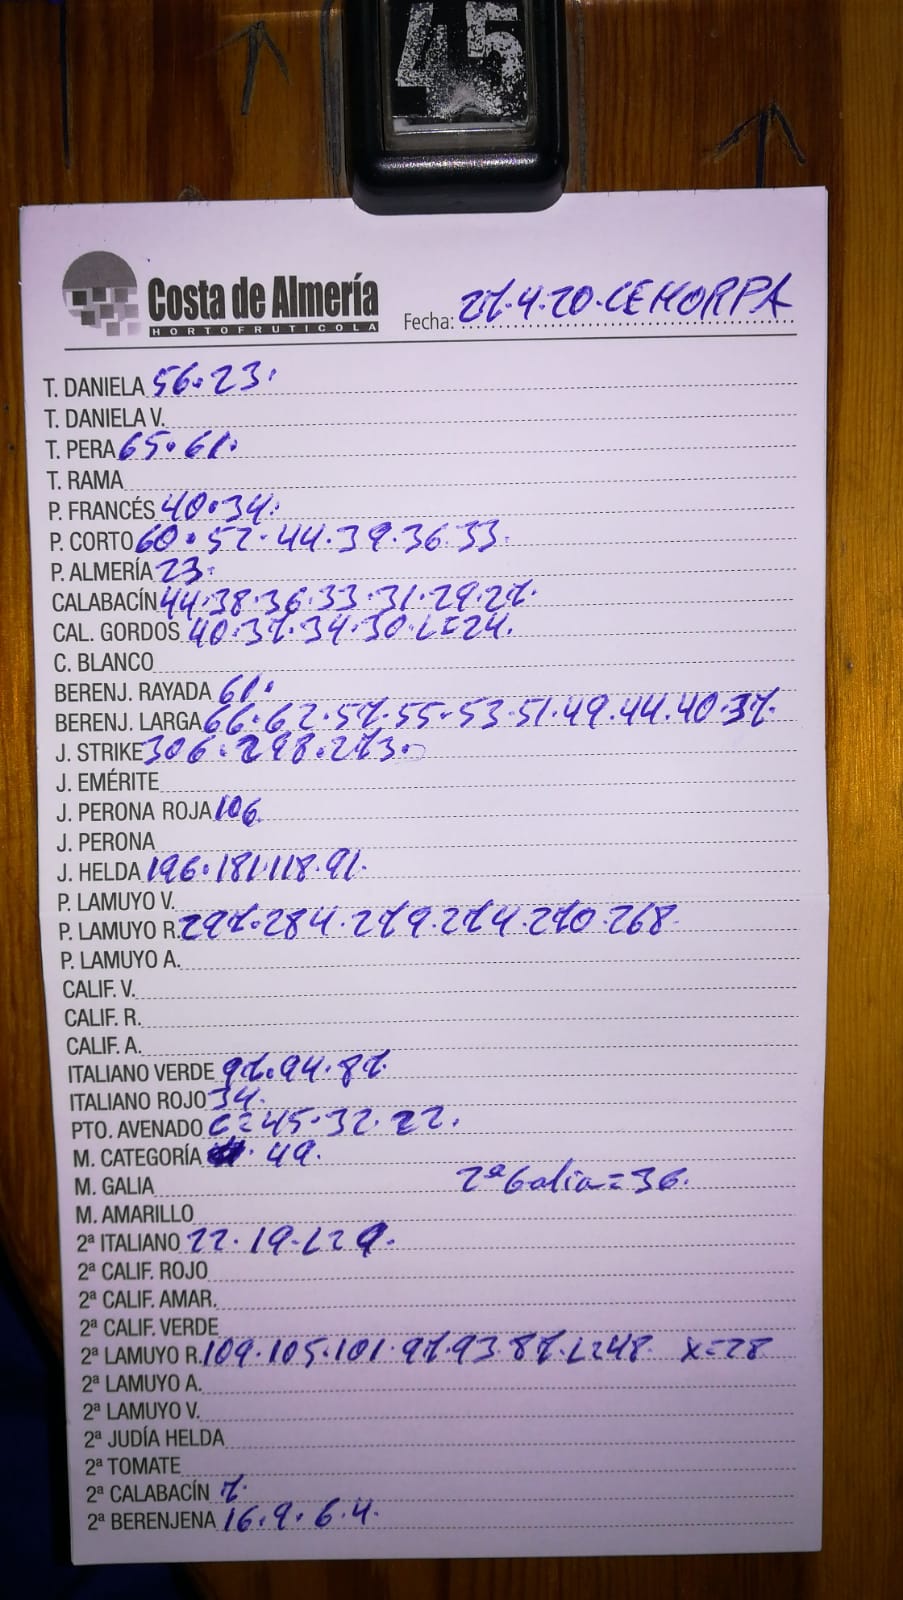 45
Costa de Almería
HORTOFRUTICOLA
Fecha: 27.4.20.CEHORPA
T. DANIELA 56.23.
T. DANIELA V.
T. PERA 65.61.
T. RAMA
P. FRANCÉS 40.34.
P. CORTO 60.52.44.39.36.33.
P. ALMERÍA 23.
CALABACÍN 44.38.36.33.31.29.27.
CAL. GORDOS 40.37.34.30.L=24.
C. BLANCO
BERENJ. RAYADA 61.
BERENJ. LARGA 66.62.57.55.53.51.49.44.40.37.
J. STRIKE 306.298.273.
J. EMÉRITE
J. PERONA ROJA 106
J. PERONA
J. HELDA 196.181.118.91.
P. LAMUYO V.
P. LAMUYO R. 297.284.279.274.270.268.
P. LAMUYO A.
CALIF. V.
CALIF. R.
CALIF. A.
ITALIANO VERDE 97.94.87.
ITALIANO ROJO 34.
PTO. AVENADO C=45.32.22.
M. CATEGORÍA 49.
M. GALIA 2ª Galia=36.
M. AMARILLO
2ª ITALIANO 22.19.L=9.
2ª CALIF. ROJO
2ª CALIF. AMAR.
2ª CALIF. VERDE
2ª LAMUYO R. 109.105.101.97.93.87.L=48 X=28
2ª LAMUYO A.
2ª LAMUYO V.
2ª JUDÍA HELDA
2ª TOMATE
2ª CALABACÍN 7.
2ª BERENJENA 16.9.6.4.